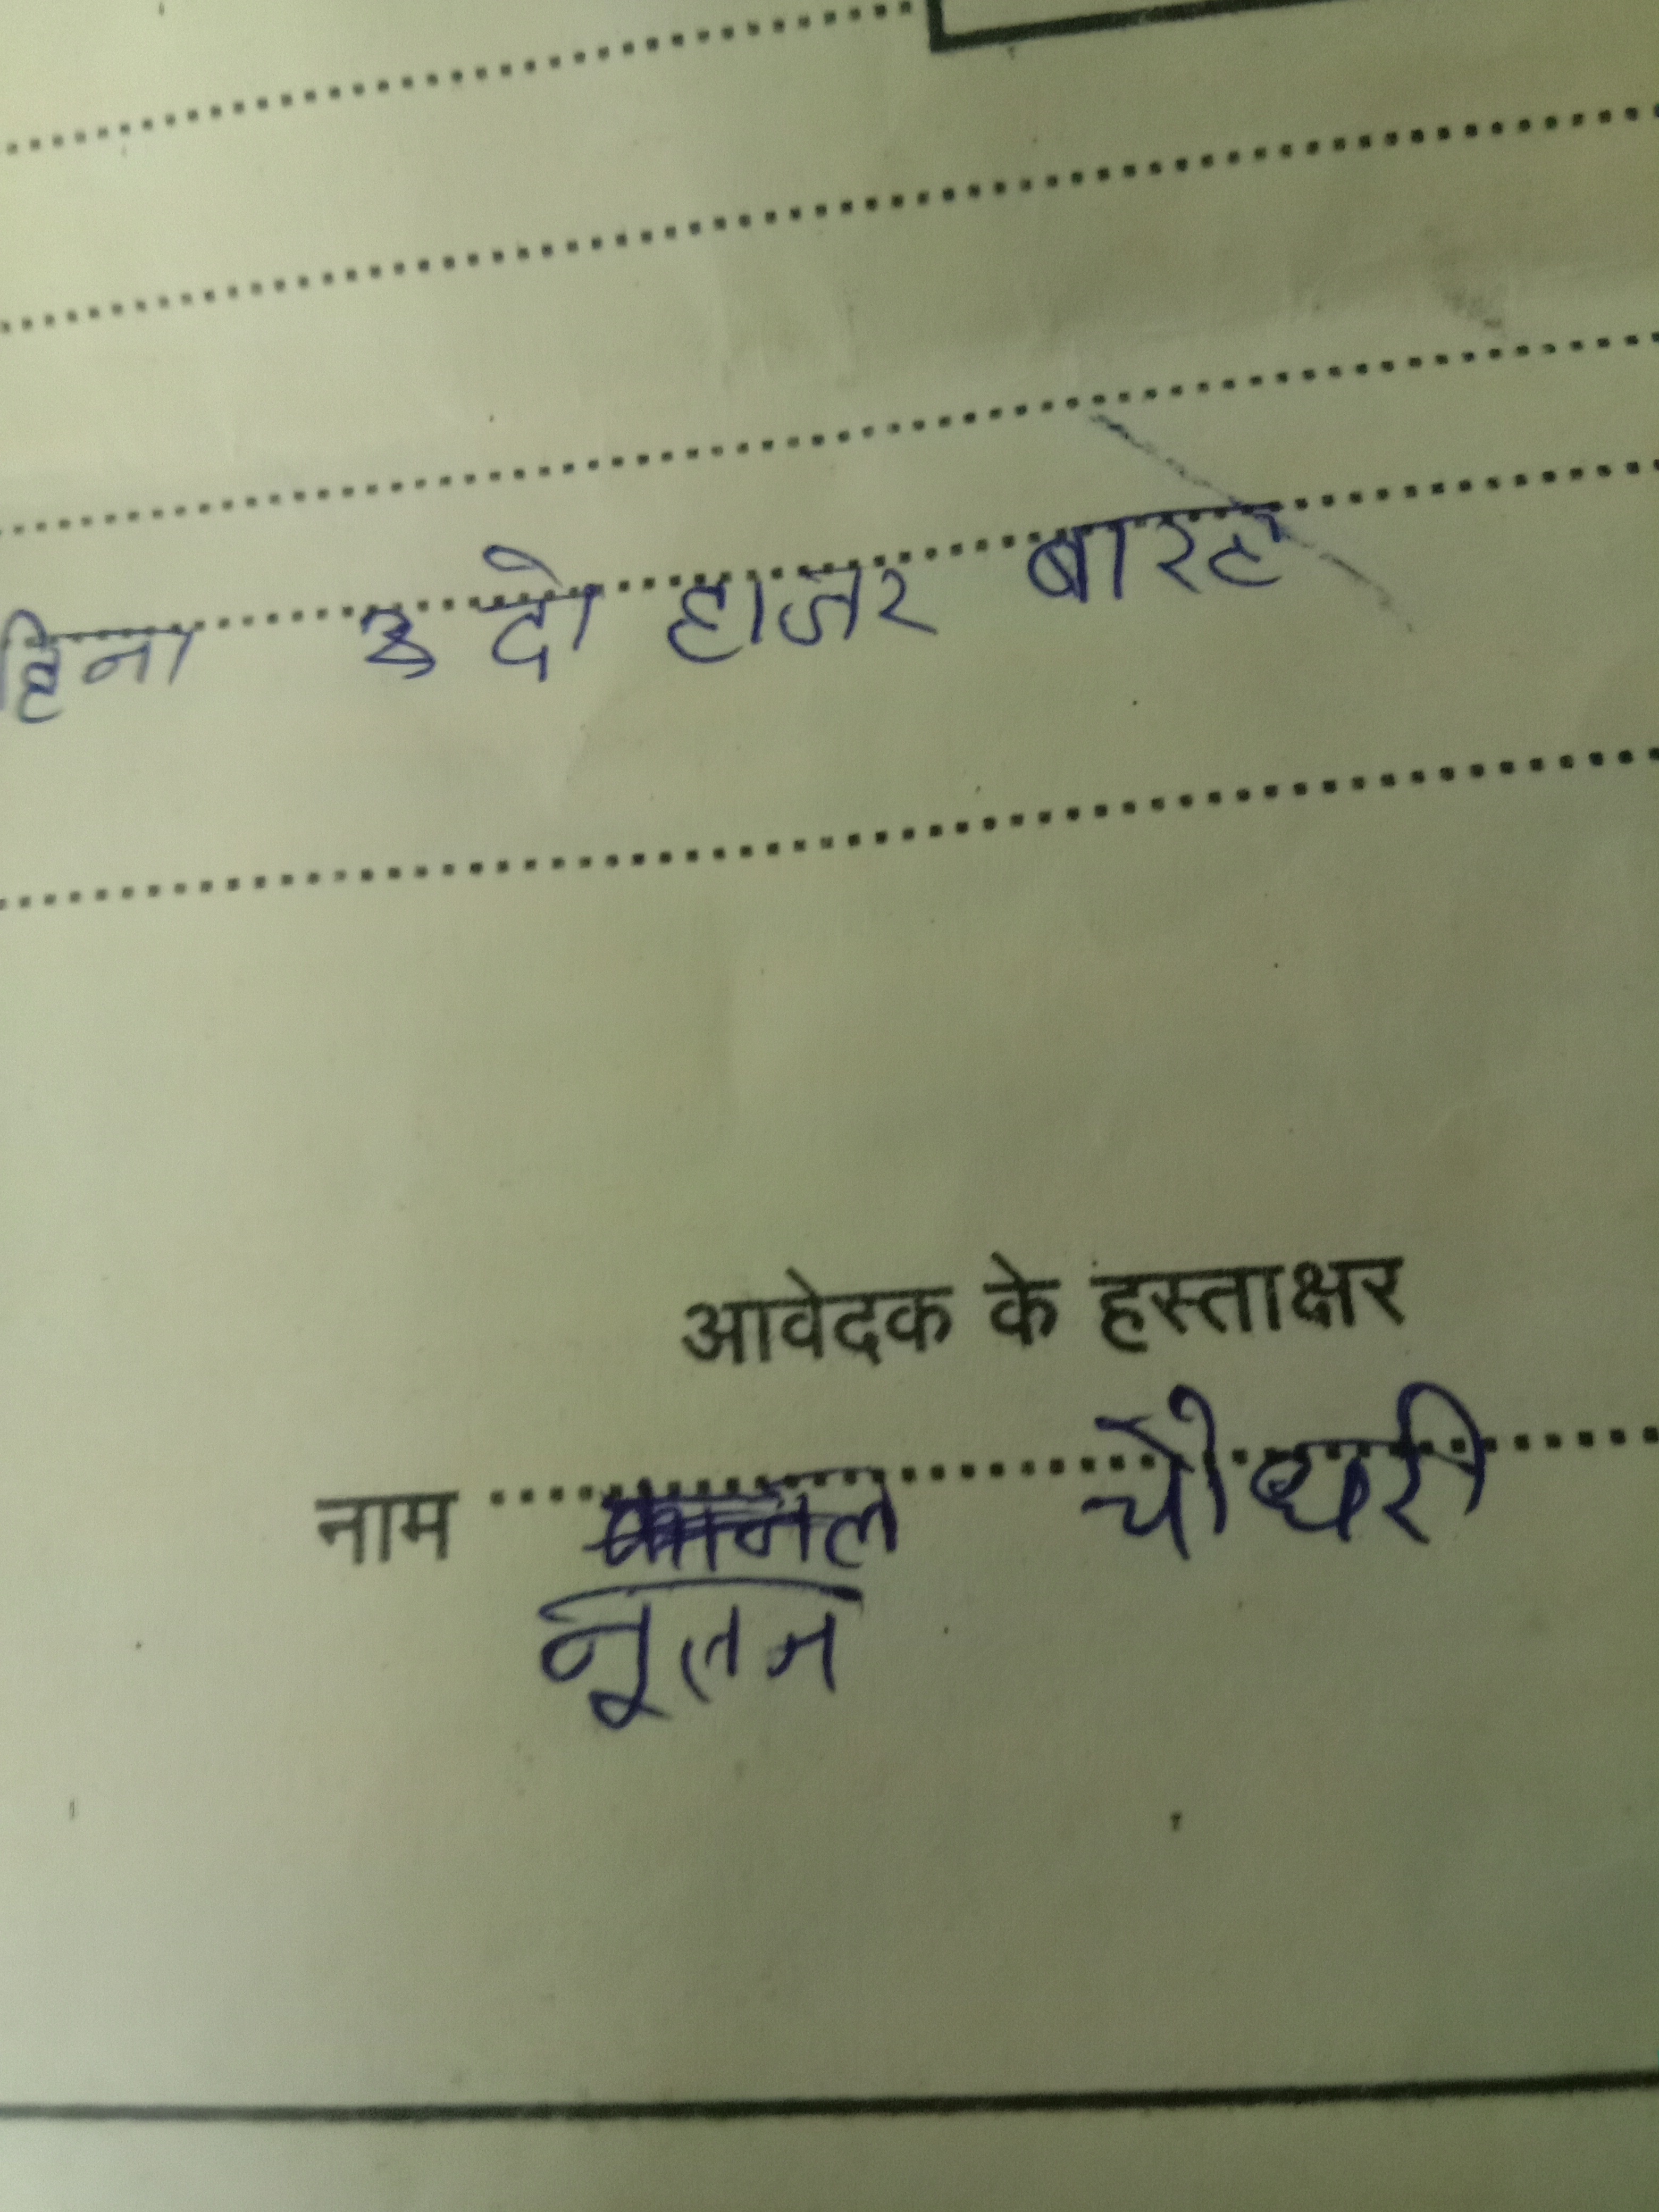 दो हाजर बारह
आवेदक के हस्ताक्षर
नाम चौधरी
नूतन